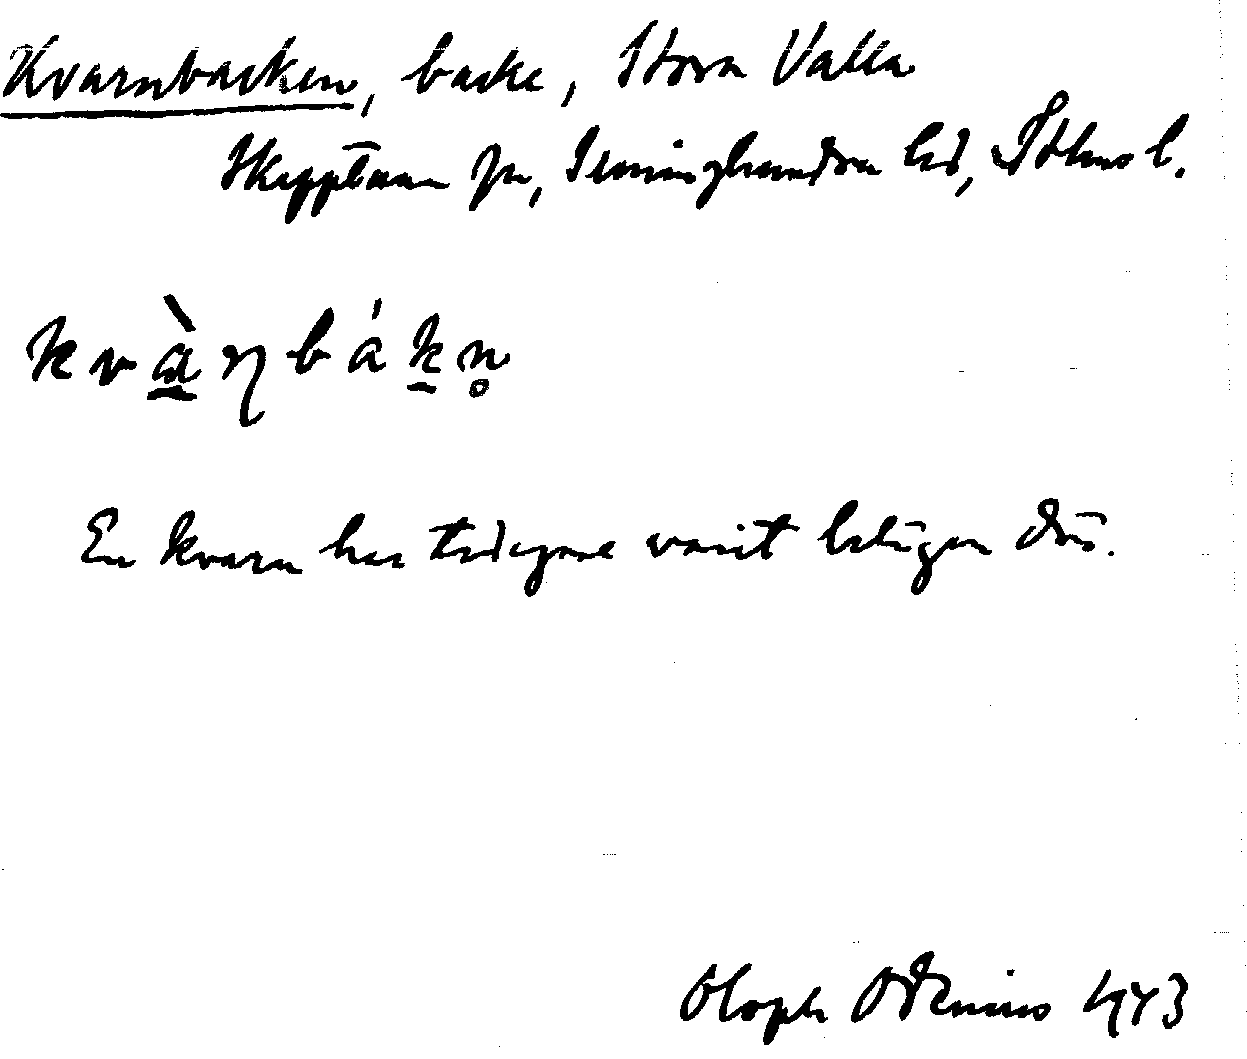 Kvarnbacken, backe, Stora Valla
Skepptuna sn, Seminghundra hd, Sthms l.
kvàɳbákn̥
En kvarn har tidigare varit belägen där.
Oloph Odenius 1943